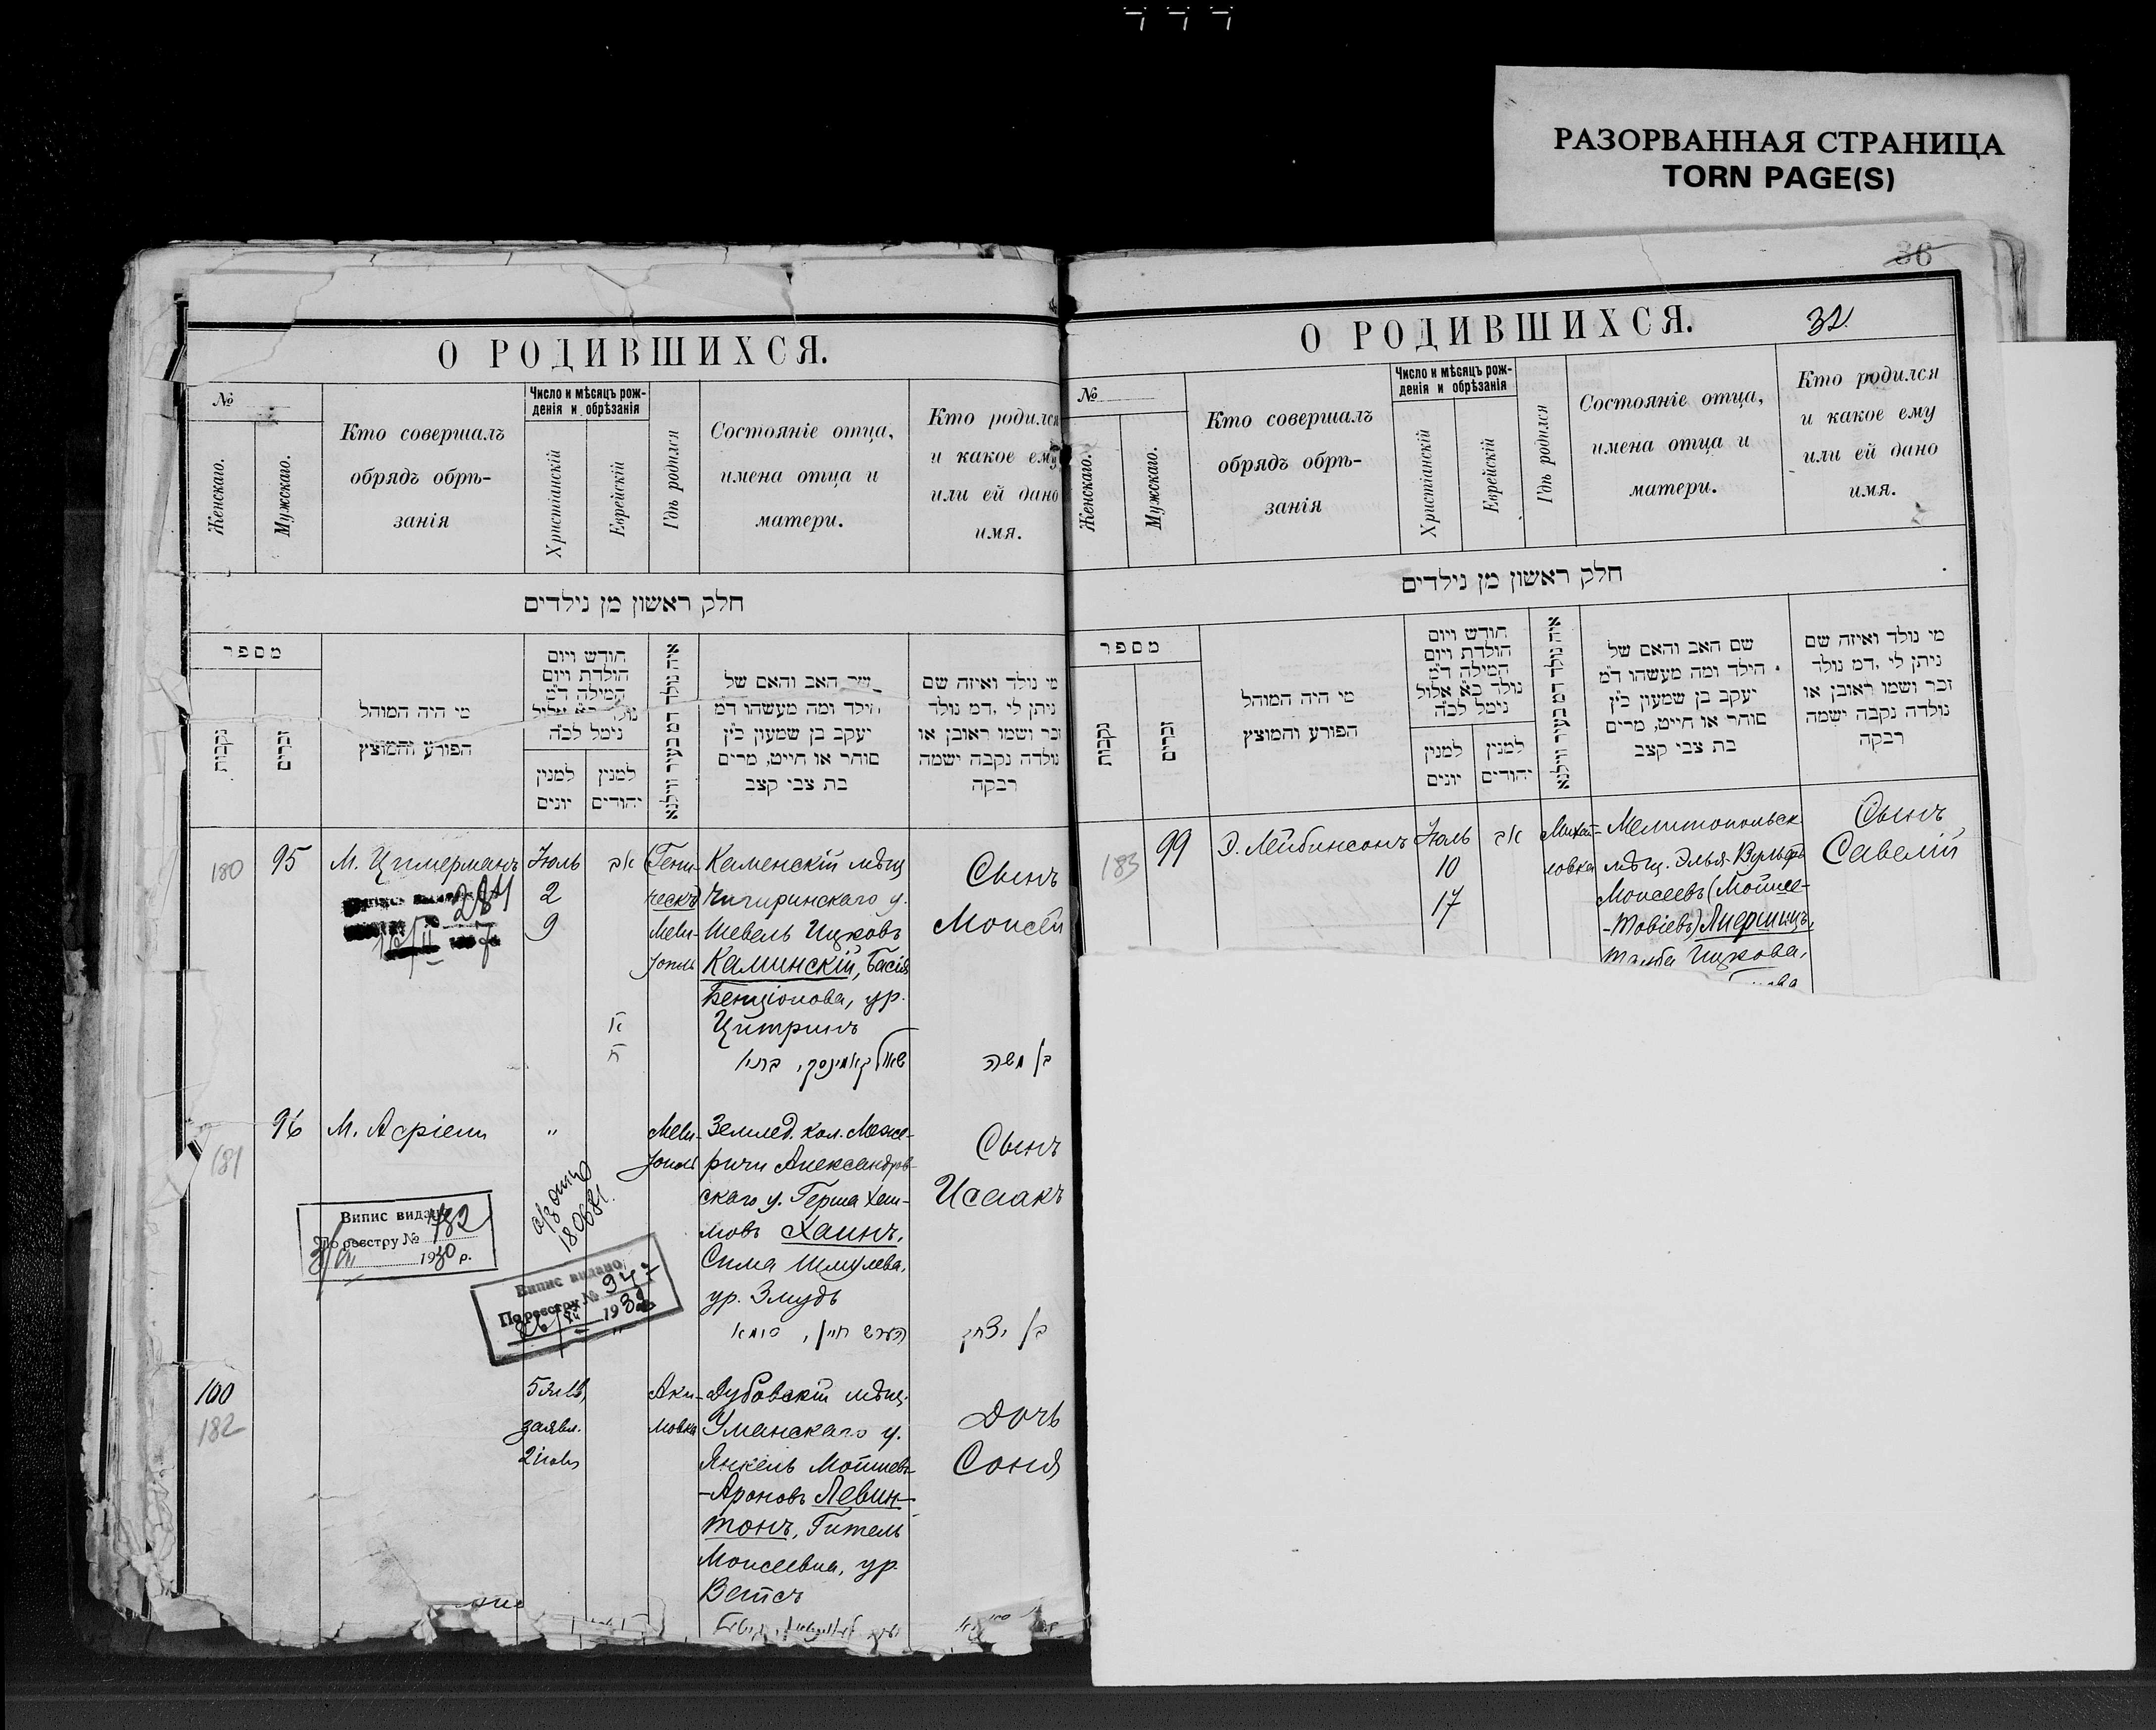 РАЗОРВАННАЯ СТРАНИЦА
TORN PAGE(S)
О РОДИВШИХСЯ.
№
Женскаго.
Мужскаго.
Кто совершалъ
обрядъ обрѣ-
занія
Число и мѣсяцъ рож-
денія и обрѣзанія
Христіанскій
Еврейскій
Гдѣ родился
Состояніе отца,
имена отца и
матери.
Кто родился
и какое ему
или ей дано
имя.
חלק ראשון מן נילדים
מספר
נקבות
זכרים
מי היה המוהל
הפורע והמוצץ
חודש ויום
הולדת ויום
המילה ד"מ
נולד כ"א אלול
נימל לכ"ה
למנין
יונים
למנין
יהודים
איה נולד דמ בעיר ווילנא
שם האב והאם של
הילד ומה מעשהו ד"מ
יעקב בן שמעון כ"ץ
סוחר או חייט, מרים
בת צבי קצב
מי נולד ואיזה שם
ניתן לי .דמ נולד
זכר ושמו ראובן או
נולדה נקבה ישמה
רבקה
180
95
М. Цимерманъ
284
Іюль
2
9
אב
Гени-
ческъ
Мели-
тополь
Каменскій мѣщ
Чигиринскаго у.
Шевель Ицковъ
Каминскій, Басія
Бенціонова, ур.
Цитринъ
Сынъ
Моисей
בן משה
181
96
М. Асріели
"
Мели-
тополь
Землед. кол. Меже-
ричи Александров-
скаго у. Герша Хаи-
мовъ Хаинъ,
Сима Шмулева,
ур. Змудъ
הערש חיין, סימא
Сынъ
Исаакъ
בן יצחק
Випис видано
По реєстру № 782
1930 р.
180681.
Випис видано
По реєстру № 947
1939
100
182
заявл.
Аки-
мовка
Дубовскій мѣщ.
Уманскаго у.
Янкель Мошлевъ-
-Ароновъ Левин-
тонъ, Гитель
Моисеевна, ур.
Вейсъ
Дочь
Соня
36
О РОДИВШИХСЯ.
32.
№
Женскаго.
Мужскаго.
Кто совершалъ
обрядъ обрѣ-
занія
Число и мѣсяцъ рож-
денія и обрѣзанія
Христіанскій
Еврейскій
Гдѣ родился
Состояніе отца,
имена отца и
матери.
Кто родился
и какое ему
или ей дано
имя.
חלק ראשון מן נילדים
מספר
נקבות
זכרים
מי היה המוהל
הפורע והמוצץ
חודש ויום
הולדת ויום
המילה ד"מ
נולד כ"א אלול
נימל לכ"ה
למנין
יונים
למנין
יהודים
איה נולד דמ בעיר ווילנא
שם האב והאם של
הילד ומה מעשהו ד"מ
יעקב בן שמעון כ"ץ
סוחר או חייט, מרים
בת צבי קצב
מי נולד ואיזה שם
ניתן לי .דמ נולד
זכר ושמו ראובן או
נולדה נקבה ישמה
רבקה
183
99
Э. Лейбинсонъ
Іюль
10
17
אב
Михай-
ловка
Мелитопольск.
мѣщ. Элья-Вульфъ
Моисеевъ (Мойше-
-Товіевъ)
Ицкова,
Сынъ
Савелій